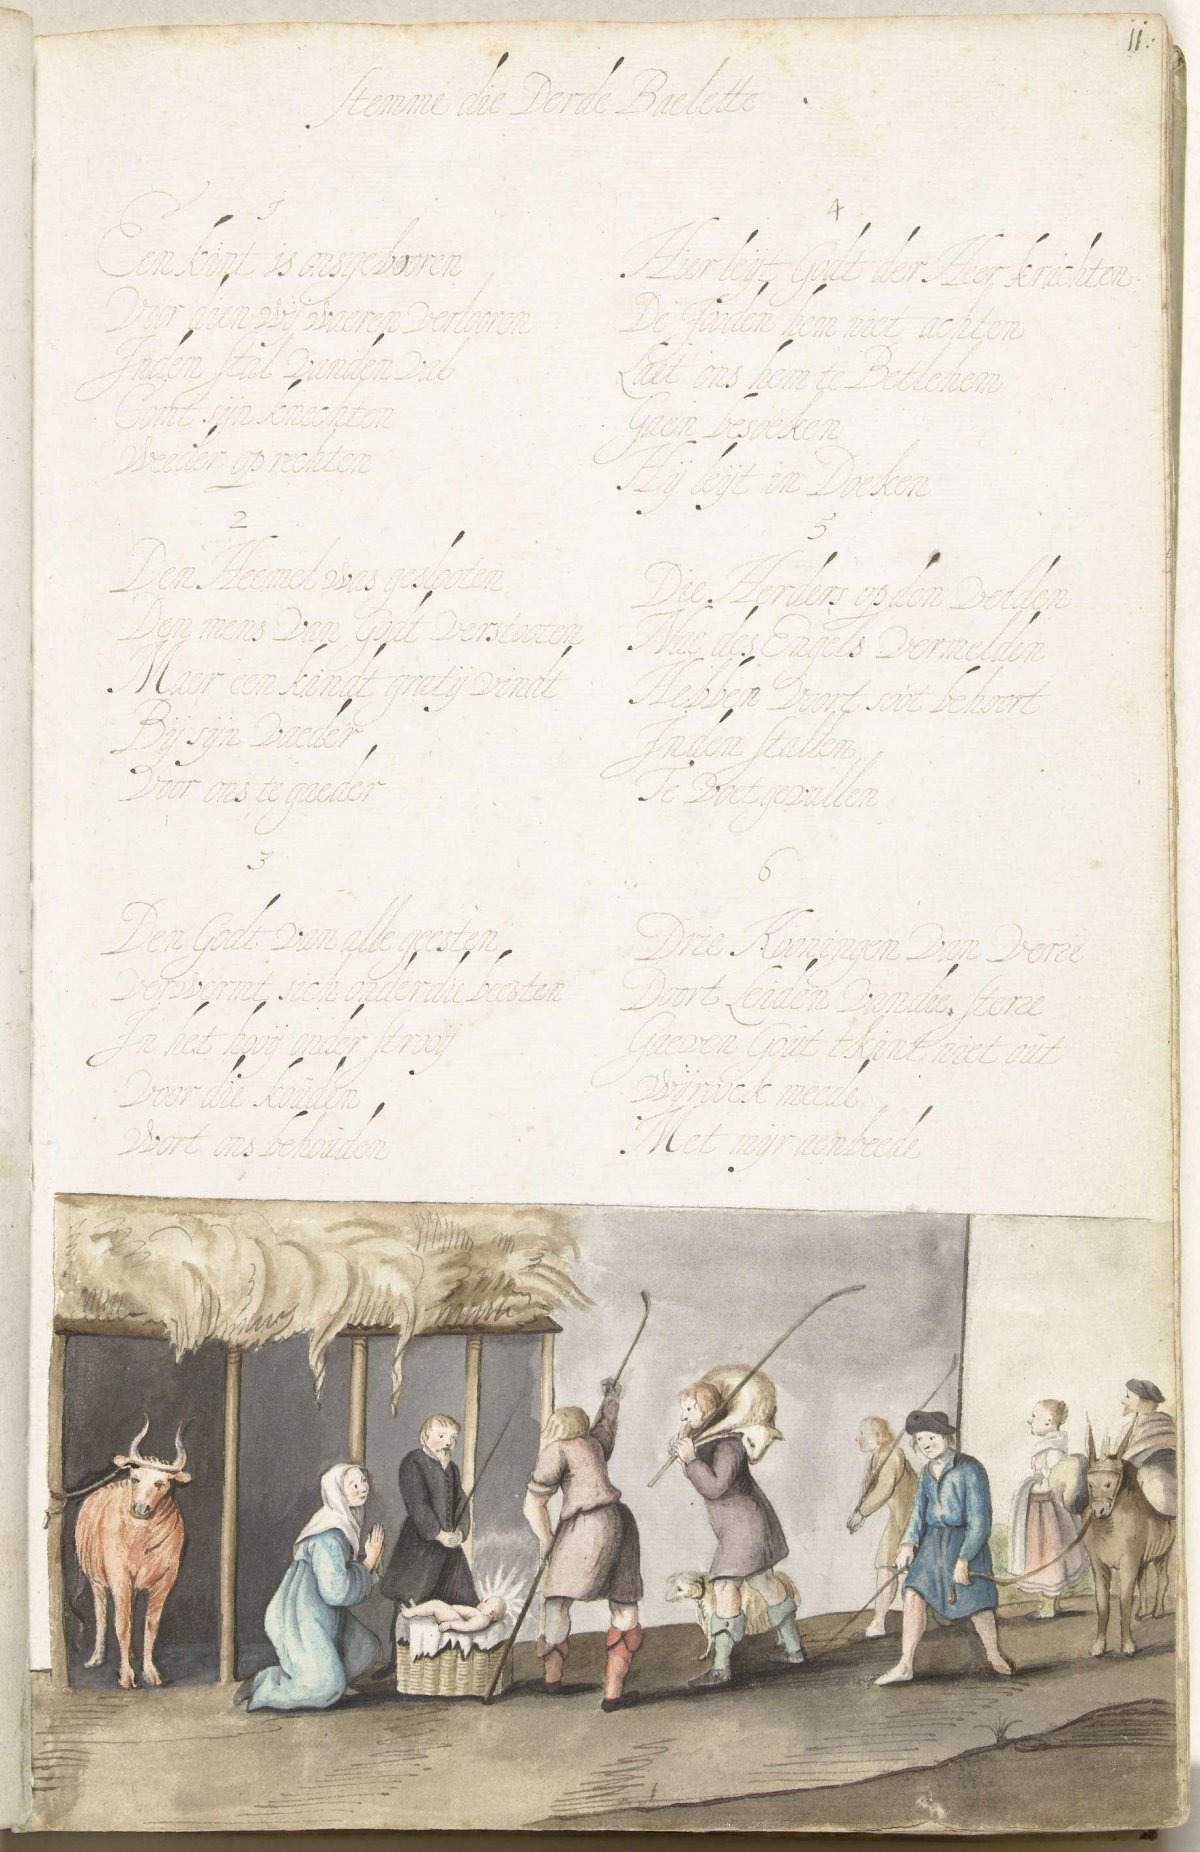 11.
Stemme die Derde Baelette
1
Een kint is ons gebooren
Voor dien wij waeren verlooren
Inden stal vanden val
Comt sijn knechten
Weeder op rechten
2
Den Heemel was geslooten
Den mens van Godt verstooten
Maer een kindt gratij vindt
Bij sijn vaeder
Voor ons te gaeder
3
Den Godt van alle geesten
verwermt sich onder die beesten
In het hooij onder strooij
Voor die kouden
wort ons behouden
4
Hier leijt Godt der Heer krachten
De Joden hem niet achten
Laet ons hem te Betlehem
Gaen besoeken
Hij leijt in Doeken
5
Die Herders op den velden
Nae des Engels vermelden
Hebben voort soot behoort
Inden stallen
Te voet gevallen
6
Drie Kooningen van verre
Doort Leiden van die sterre
Gaeven Gout t kint niet out
Wijroock meede
Met mijr aenbeede